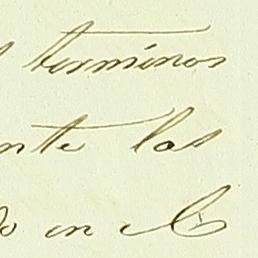 terminos
nte las
do en el